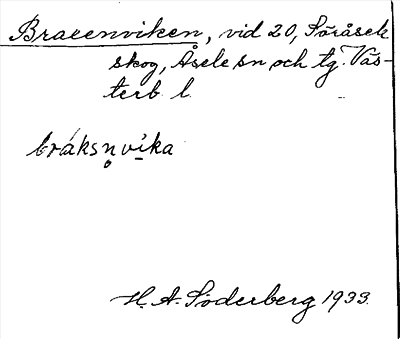 Braxenviken, vid 20, Söråsele
skog, Åsele sn och tg. Väs-
terb. l.
bráksn̥ vi̠ka
H. A. Söderberg 1933.